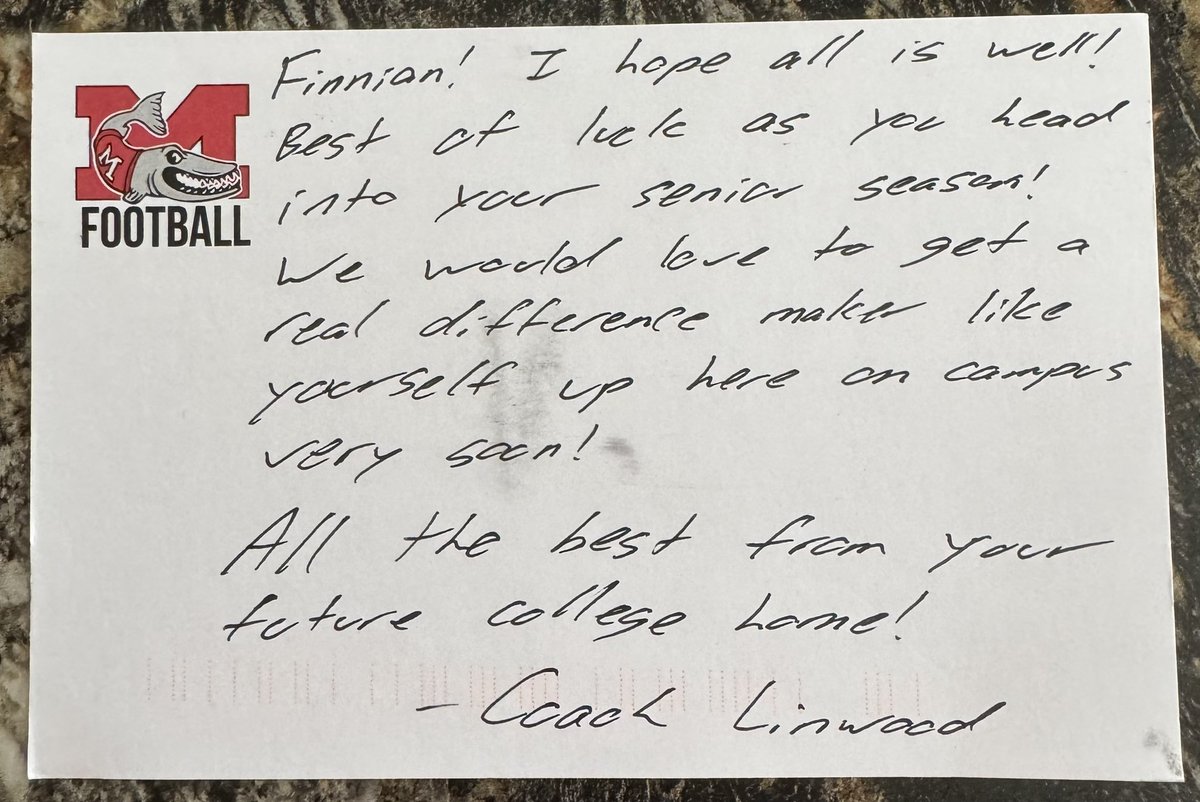 M
M
FOOTBALL
Finnian! I hope all is well!
Best of luck as you head
into your senior season!
We would love to get a
real difference maker like
yourself up here on campus
very soon!
All the best from your
future college home!
- Coach Linwood